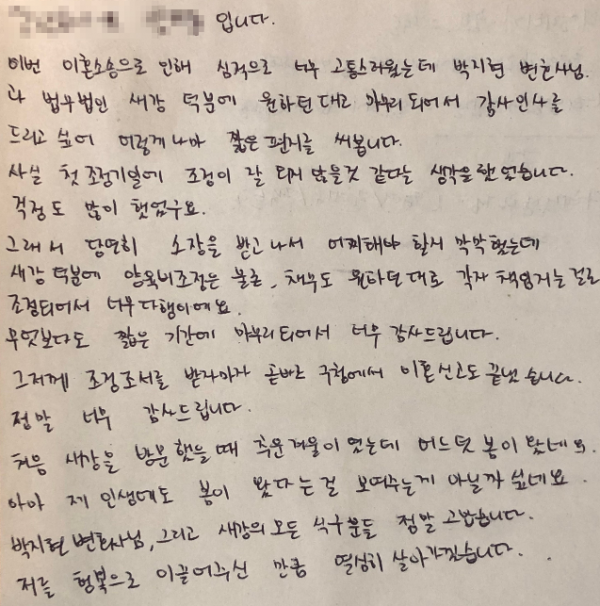 입니다.
이번 이혼소송으로 인해 심적으로 너무 고통스러웠는데 박지현 변호사님.
과 법무법인 새강 덕분에 원하던대로 마무리 되어서 감사인사를
드리고 싶어 이렇게나마 짧은 편지를 써봅니다.
사실 첫 조정기일에 조정이 잘 되지 않을것 같다는 생각을 했었습니다.
걱정도 많이 했었구요.
그래서 당연히 소장을 받고 나서 어찌해야 할지 막막했는데
새강 덕분에 양육비조정은 물론, 채무도 원하던 대로 각자 책임지는 걸로
조정되어서 너무 다행이에요.
무엇보다도 짧은 기간에 마무리 되어서 너무 감사드립니다.
그저께 조정조서를 받자마자 곧바로 구청에서 이혼신고도 끝냈습니다.
정말 너무 감사드립니다.
처음 새강을 방문했을 때 추운겨울이었는데 어느덧 봄이 왔네요.
아마 제 인생에도 봄이 왔다는걸 보여주는게 아닐까 싶네요.
박지현변호사님, 그리고 새강의 모든 식구분들 정말 고맙습니다.
저를 행복으로 이끌어주신 만큼 열심히 살아가겠습니다.